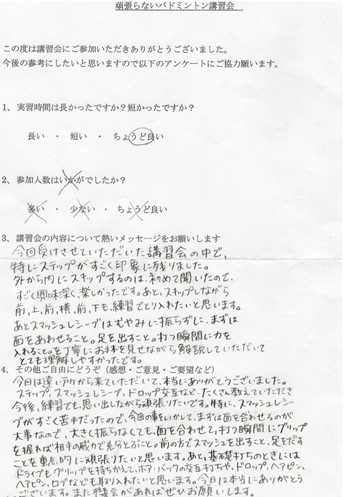 頑張らないバドミントン講習会
この度は講習会にご参加いただきありがとうございました。
今後の参考にしたいと思いますので以下のアンケートにご協力願います。
1、実習時間は長かったですか？短かったですか？
長い ・ 短い ・ ちょうど良い
2、参加人数はいかがでしたか？
多い ・ 少ない ・ ちょうど良い
3、講習会の内容について熱いメッセージをお願いします
今回受けさせていただいた講習会の中で、
特にステップがすごく印象に残りました。
外から内にスキップするのは、初めて聞いたので、
すごく興味深く、楽しかったです。あと、スキップしながら
前、上、前、横、前、下も、練習でとり入れたいと思います。
あとスマッシュレシーブはむやみに振らずに、まずは
面をあわせること。足を出すこと。打つ瞬間に力を
入れること。を丁寧にお手本を見せながら解説していただいて
とても理解しやすかったです。
4、その他ご自由にどうぞ（感想・ご意見・ご要望など）
今日は遠い所から来ていただいて、本当にありがとうございました。
ステップ、スマッシュレシーブ、ドロップ、交互など、たくさん教えていただき
今後、練習でも、思い出しながら頑張りたいです。特に、スマッシュレシー
ブがすごく苦手だったので、今回の事をいかして、まずは面を合わせるのが
大事なので、大きく振らなくても、面を合わせて、打つ瞬間にグリップ
を握れば相手の威力で充分とぶこと。前の方でスマッシュを出すこと、足をだす
ことを重点的に頑張りたいと思います。あと、基礎打ちのときには
ドライブも、グリップを持ちかえて、ホア・バックの交互打ちや、ドロップ、ヘアピン、
ヘアピン、ロブなども取り入れたいと思います。今日は本当にありがとう
ございます。また機会があればぜひお願いします。